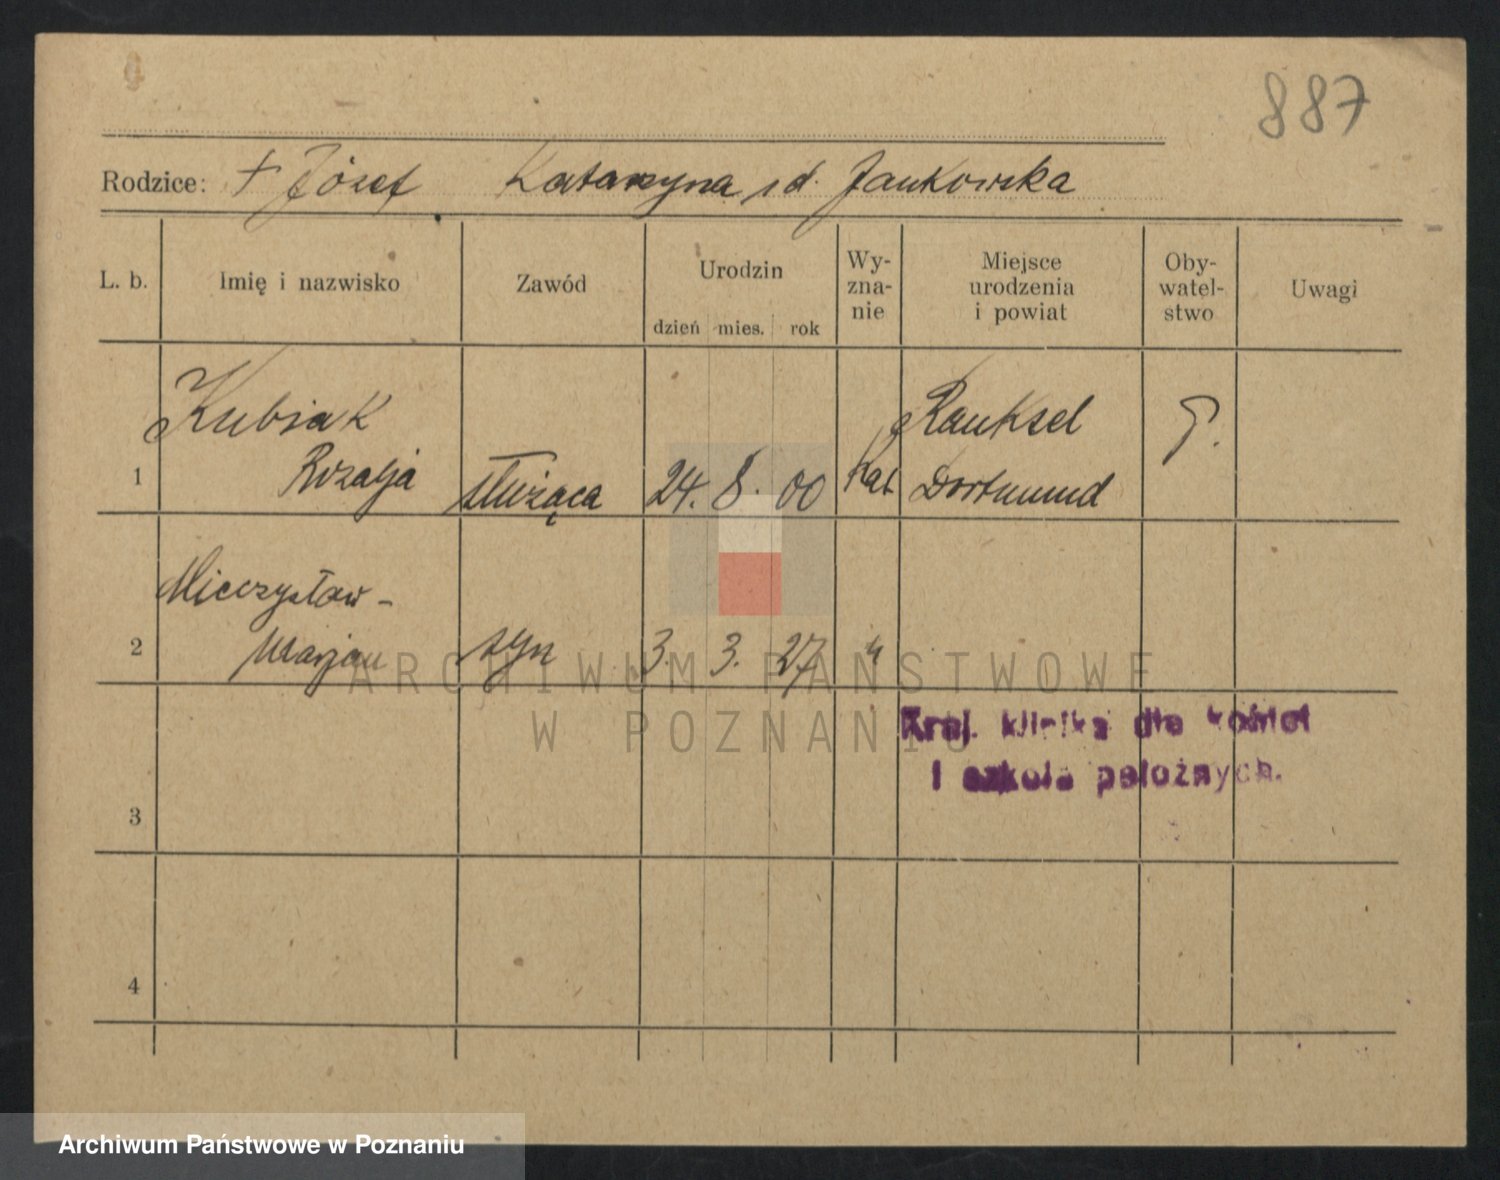 887
Rodzice: + Józef Katarzyna z d. Jankowska
L. b. Imię i nazwisko Zawód Urodzin dzień mies. rok Wy-zna-nie Miejsce urodzenia i powiat Oby-watel-stwo Uwagi
Kubiak Rauksel P.
1 Rozalja służąca 24. 8. 00 kat Dortmund
Mieczysław-
2 Marjan syn 3. 3. 27 "
Kraj. klinika dla kobiet
i szkoła położnych.
3
4
ARCHIWUM PAŃSTWOWE
W POZNANIU
Archiwum Państwowe w Poznaniu